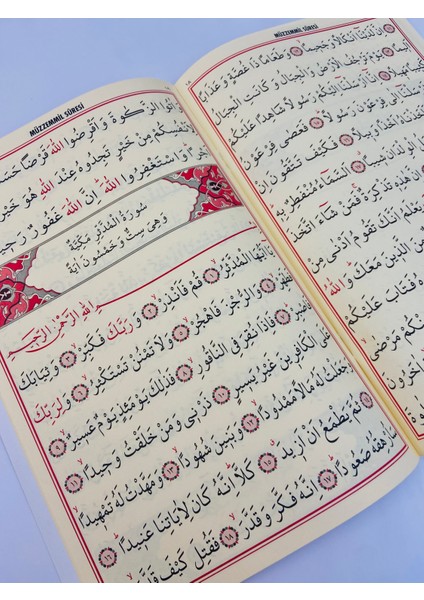 MÜZZEMMİL SÛRESİ
اِنَّ لَدَيْنَا اَنْكَالًا وَجَحِيمًا ﴿١٢﴾ وَطَعَامًا ذَا غُصَّةٍ وَعَذَابًا
اَلِيمًا ﴿١٣﴾ يَوْمَ تَرْجُفُ الْاَرْضُ وَالْجِبَالُ وَكَانَتِ الْجِبَالُ
مَهِيلًا ﴿١٤﴾ اِنَّٓا اَرْسَلْنَٓا اِلَيْكُمْ رَسُولًا شَاهِدًا عَلَيْكُمْ
اِلٰى فِرْعَوْنَ رَسُولًا ﴿١٥﴾ فَعَصٰى فِرْعَوْنُ
وَبِيلًا ﴿١٦﴾ فَكَيْفَ تَتَّقُونَ اِنْ
الْوِلْدَانَ شِيبًا ﴿١٧﴾ اَلسَّمَٓاءُ مُنْفَطِرٌ بِهِ
اِنَّ هٰذِهِ تَذْكِرَةٌ فَمَنْ شَٓاءَ اتَّخَذَ
يَعْلَمُ اَنَّكَ تَقُومُ اَدْنٰى مِنْ
مِنَ الَّذِينَ مَعَكَ وَاللّٰهُ
فَتَابَ عَلَيْكُمْ
مِنْكُمْ مَرْضٰى
وَاٰخَرُونَ
MÜZZEMMİL SÛRESİ
الزَّكٰوةَ وَاَقْرِضُوا اللّٰهَ قَرْضًا حَسَنًا
لِاَنْفُسِكُمْ مِنْ خَيْرٍ تَجِدُوهُ عِنْدَ اللّٰهِ هُوَ خَيْرًا
وَاسْتَغْفِرُوا اللّٰهَ اِنَّ اللّٰهَ غَفُورٌ رَحِيمٌ
سُورَةُ الْمُدَّثِّرِ مَكِّيَّةٌ
وَهِيَ سِتٌّ وَخَمْسُونَ اٰيَةً
اللّٰهِ الرَّحْمٰنِ الرَّحِيمِ
يَٓا اَيُّهَا الْمُدَّثِّرُ ﴿١﴾ قُمْ فَاَنْذِرْ ﴿٢﴾ وَرَبَّكَ فَكَبِّرْ ﴿٣﴾ وَثِيَابَكَ
فَطَهِّرْ ﴿٤﴾ وَالرُّجْزَ فَاهْجُرْ ﴿٥﴾ وَلَا تَمْنُنْ تَسْتَكْثِرُ ﴿٦﴾ وَلِرَبِّكَ
فَاصْبِرْ ﴿٧﴾ فَاِذَا نُقِرَ فِي النَّاقُورِ ﴿٨﴾ فَذٰلِكَ يَوْمَئِذٍ يَوْمٌ عَسِيرٌ ﴿٩﴾
عَلَى الْكَافِرِينَ غَيْرُ يَسِيرٍ ﴿١٠﴾ ذَرْنِي وَمَنْ خَلَقْتُ وَحِيدًا ﴿١١﴾
وَجَعَلْتُ لَهُ مَالًا مَمْدُودًا ﴿١٢﴾ وَبَنِينَ شُهُودًا ﴿١٣﴾ وَمَهَّدْتُ لَهُ تَمْهِيدًا ﴿١٤﴾
ثُمَّ يَطْمَعُ اَنْ اَزِيدَ ﴿١٥﴾ كَلَّا اِنَّهُ كَانَ لِاٰيَاتِنَا عَنِيدًا ﴿١٦﴾
سَاُرْهِقُهُ صَعُودًا ﴿١٧﴾ اِنَّهُ فَكَّرَ وَقَدَّرَ ﴿١٨﴾ فَقُتِلَ كَيْفَ قَدَّرَ